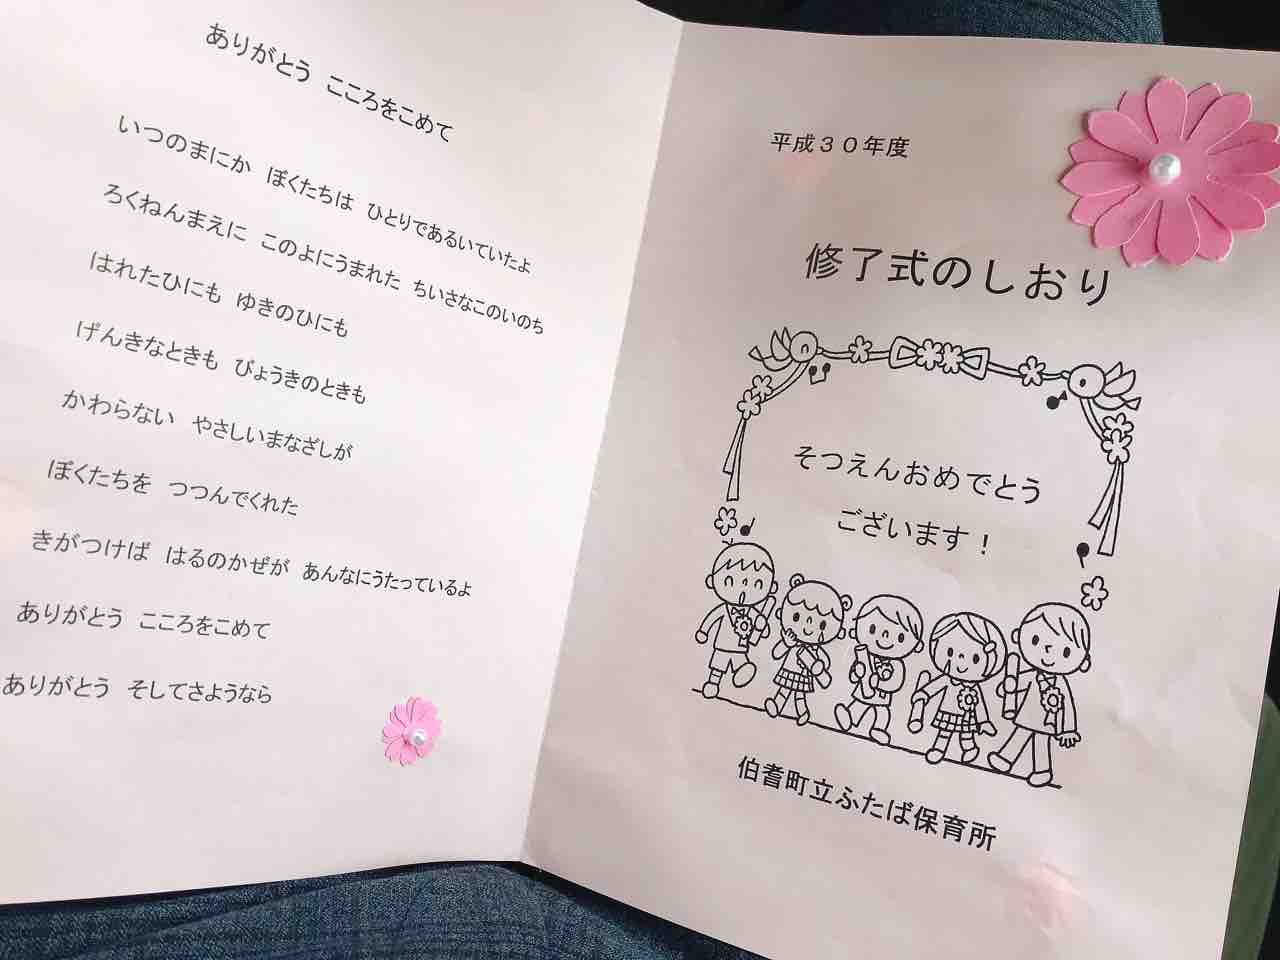 ありがとう こころをこめて
いつのまにか ぼくたちは ひとりであるいていたよ
ろくねんまえに このよにうまれた ちいさなこのいのち
はれたひにも ゆきのひにも
げんきなときも びょうきのときも
かわらない やさしいまなざしが
ぼくたちを つつんでくれた
きがつけば はるのかぜが あんなにうたっているよ
ありがとう こころをこめて
ありがとう そしてさようなら
平成３０年度
修了式のしおり
そつえんおめでとう
ございます！
伯耆町立ふたば保育所